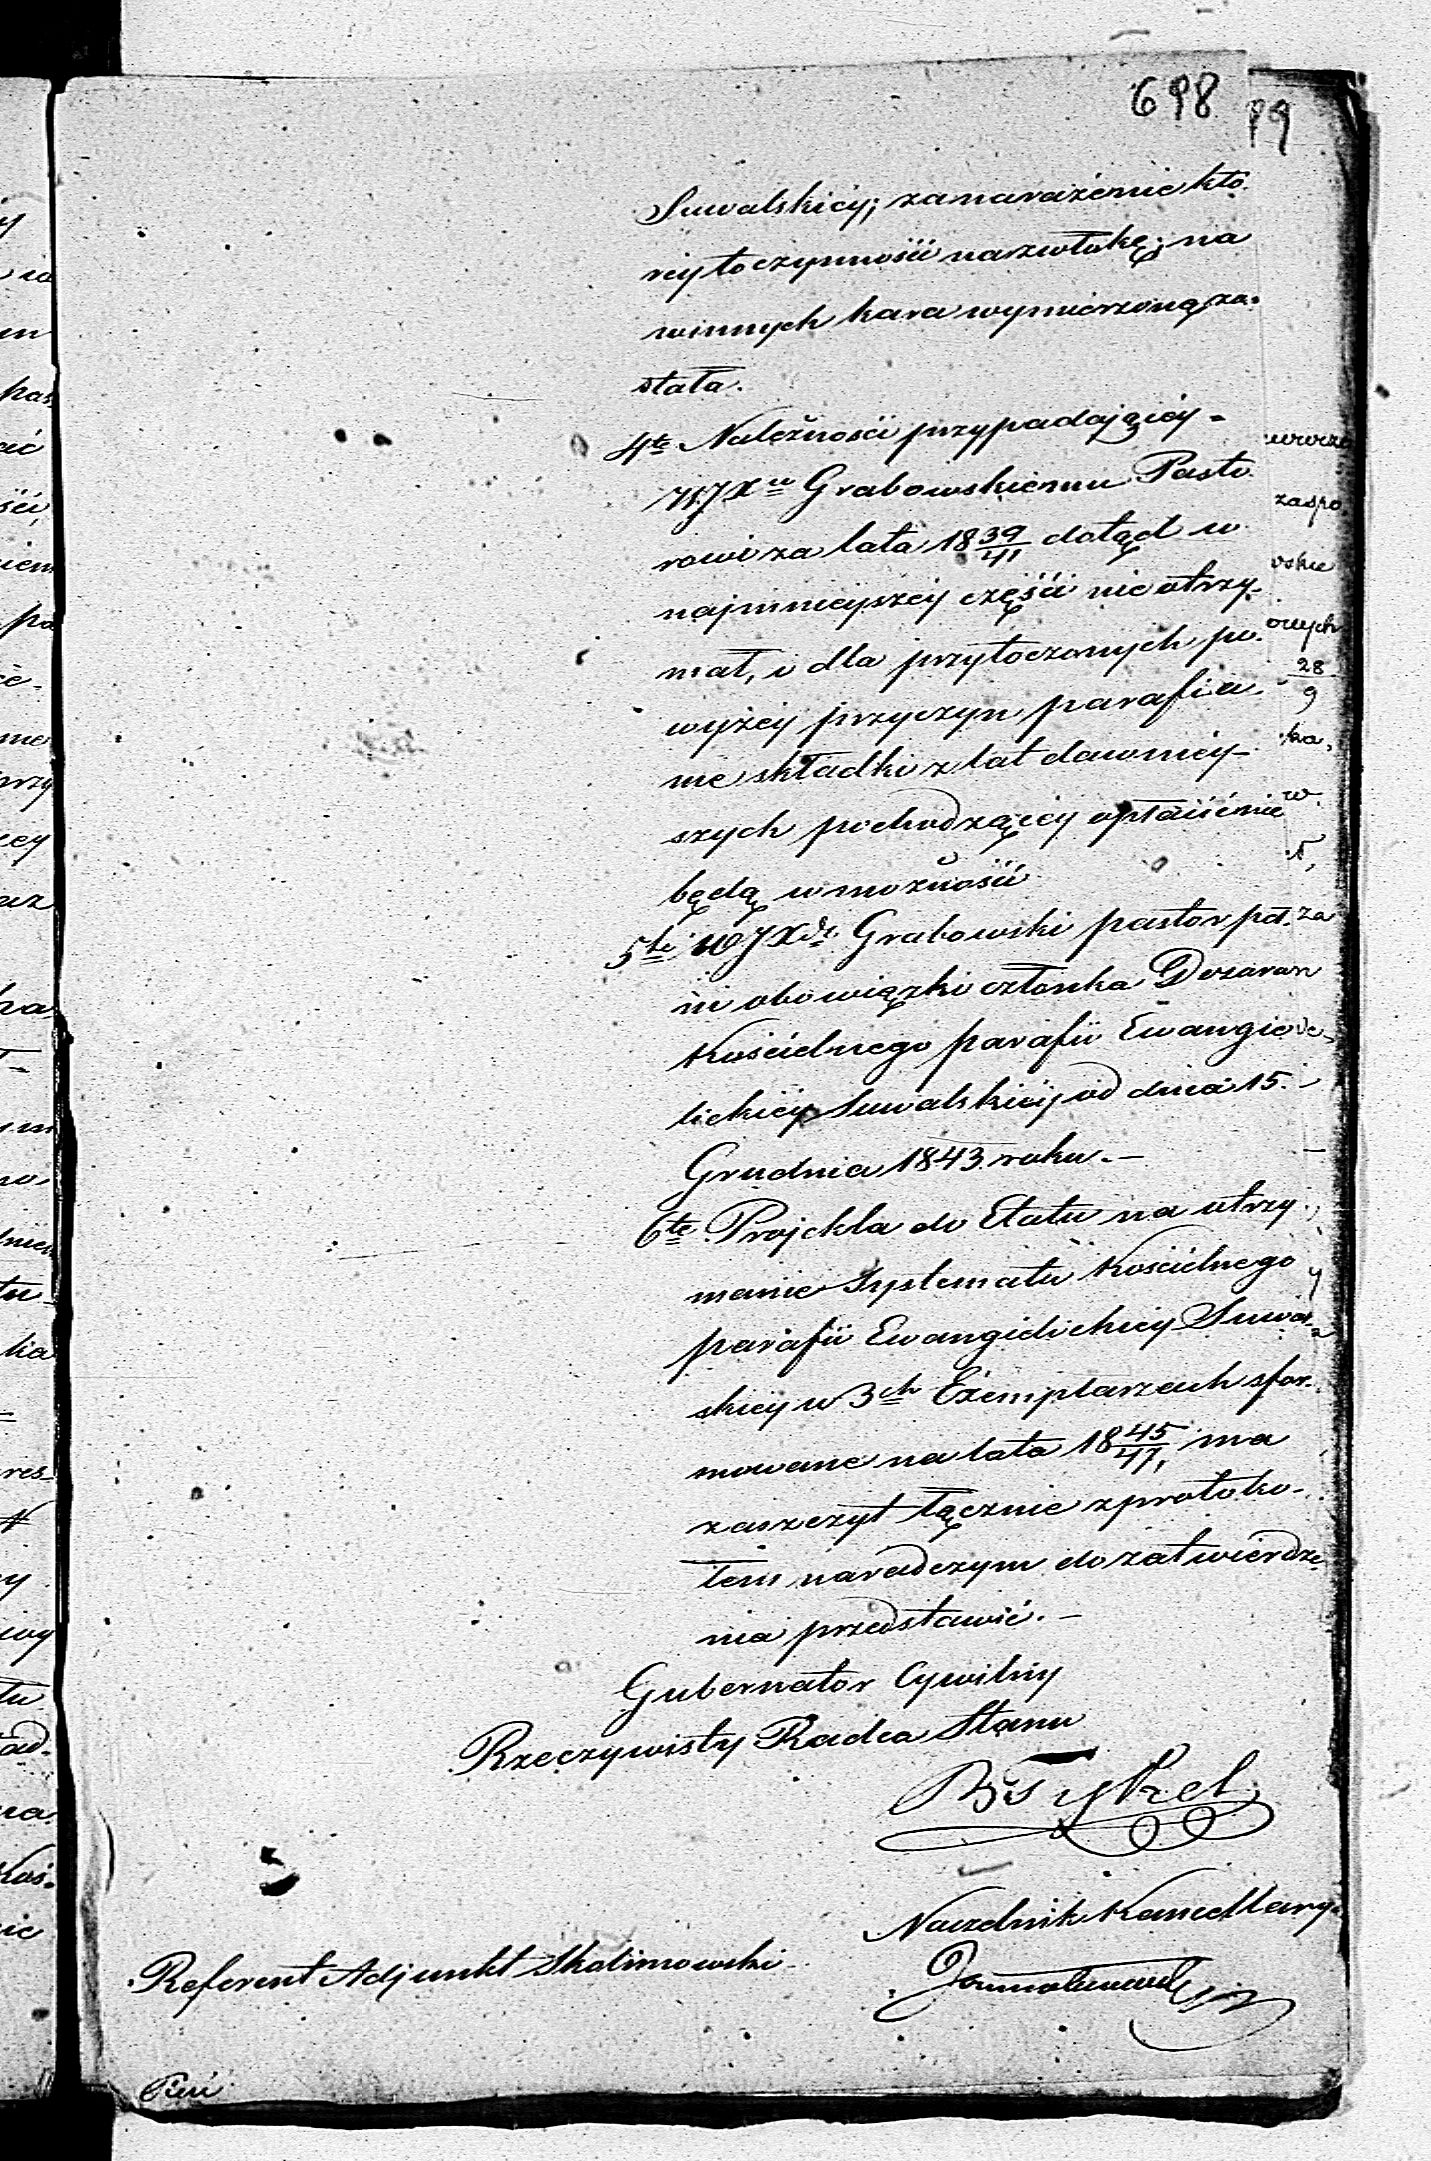 698 79
Suwalskiéy; za narażenie któ
réy to czynności na zwłokę, na
winnych kara wymierzoną zo.
stała.
4te Należności przypadającéy
WJXu Grabowskiemu Pasto
rowi za lata 18 39/41 dotąd w
najmnieyszéy części nie otrzy.
mał, i dla przytoczonych po.
wyżéy przyczyn, parafia.
nie składki z lat dawniéy
szych pochodzącéy opłaiścić nie
będą w możności
5te WJXdz Grabowski pastor peł.
ni obowiązki członka Dozoru
Kościelnego parafii Ewangie
lickiéy Suwalskiéy od dnia 15.
Grudnia 1843 roku.—
6te Projekta do Etatu na utrzy
manie Systematu Kościelnego
parafii Ewangielickiéy Suwal
skiéy w 3ch Exemplarzach sfor.
mowane na lata 18 45/47, ma
zaszczyt łącznie z protoko
łem naradczym do zatwierdze
nia przedstawić.—
Gubernator Cywilny
Rzeczywisty Radca Stanu
Naczelnik Kancellaryi
Referent Adjunkt Skolimowski